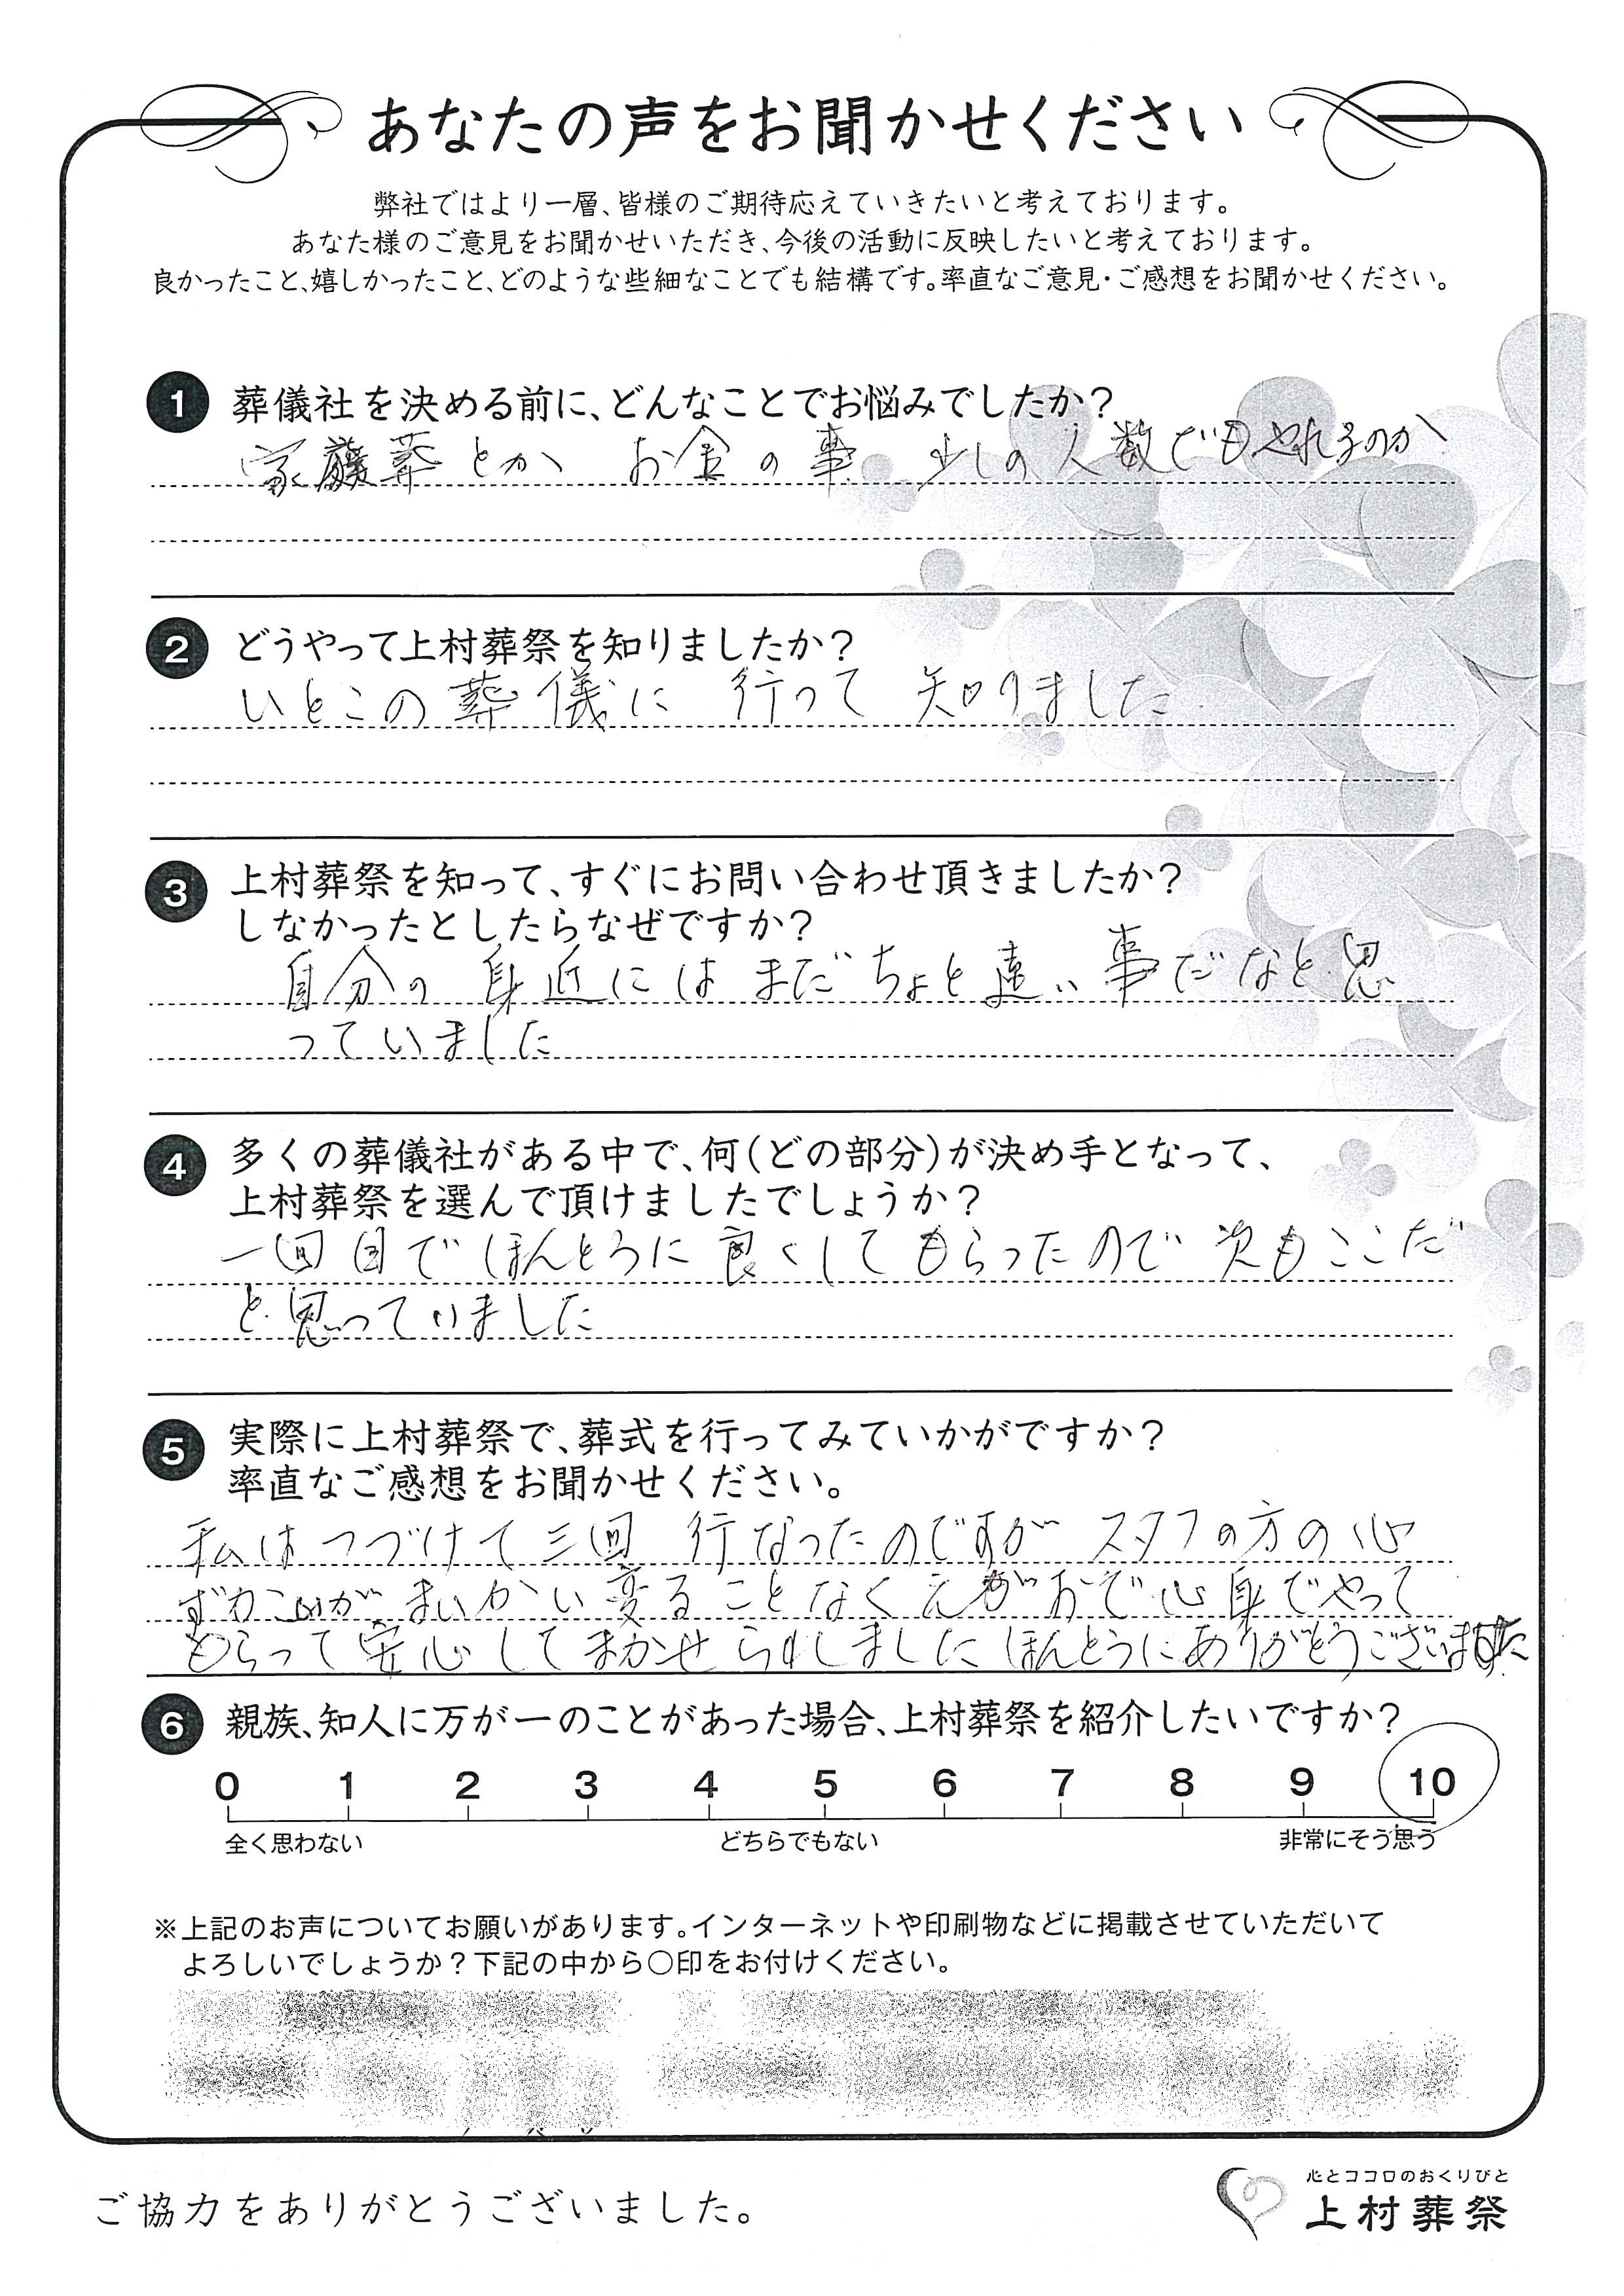 あなたの声をお聞かせください
弊社ではより一層、皆様のご期待応えていきたいと考えております。
あなた様のご意見をお聞かせいただき、今後の活動に反映したいと考えております。
良かったこと、嬉しかったこと、どのような些細なことでも結構です。率直なご意見・ご感想をお聞かせください。
1 葬儀社を決める前に、どんなことでお悩みでしたか?
家族葬とか お金の事 少しの人数でもやれるのか
2 どうやって上村葬祭を知りましたか?
いとこの葬儀に 行って 知りました
3 上村葬祭を知って、すぐにお問い合わせ頂きましたか?
しなかったとしたらなぜですか?
自分の 身近には まだ ちょと遠い事だなと思
っていました
4 多くの葬儀社がある中で、何(どの部分)が決め手となって、
上村葬祭を選んで頂けましたでしょうか?
一回目で ほんとうに 良くして もらったので 次もここだ
と思っていました
5 実際に上村葬祭で、葬式を行ってみていかがですか?
率直なご感想をお聞かせください。
私は つづけて 三回 行なったのですが スタフの方の心
ずわこいが まいかい変ることなくえがおで心身でやって
もらって安心してまかせられしました ほんとうにありがとうございました
6 親族、知人に万が一のことがあった場合、上村葬祭を紹介したいですか?
0 1 2 3 4 5 6 7 8 9 10
全く思わない どちらでもない 非常にそう思う
※上記のお声についてお願いがあります。インターネットや印刷物などに掲載させていただいて
よろしいでしょうか?下記の中から○印をお付けください。
ご協力をありがとうございました。
心とココロのおくりびと
上村葬祭